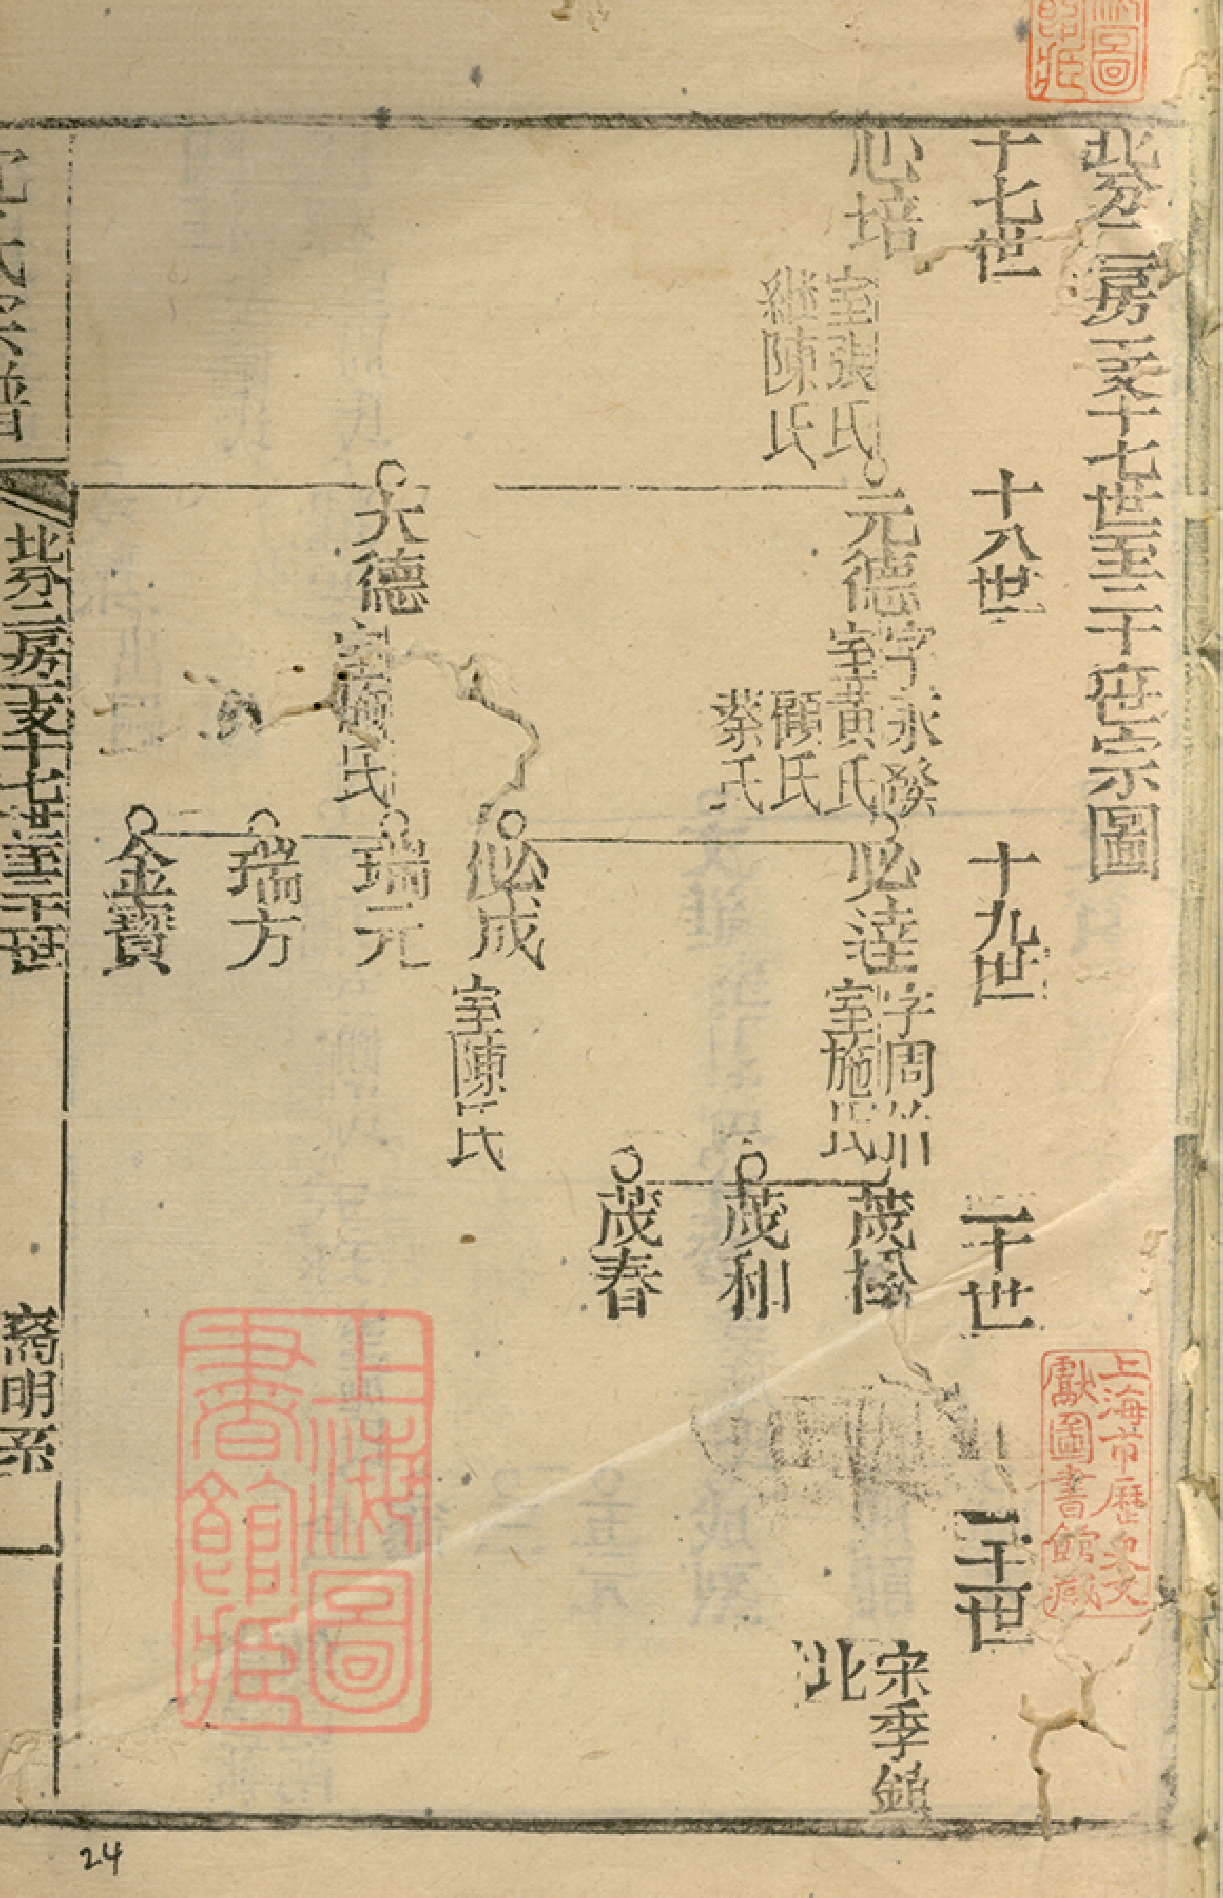 北分二房支十七世至二十世宗圖
十七世
十八世
十九世
二十世
二十一世
心培
室張氏
繼陳氏
元德
字永發
室黃氏
顧氏
蔡氏
必達
字周
室施氏
茂松
宋季鎮
北
茂和
茂春
必成
室陳氏
大德
氏
瑞元
瑞方
金寶
北分二房支十七世至二十世
裔明系
一
上海圖書館藏
上海市歷史文獻圖書館藏
24